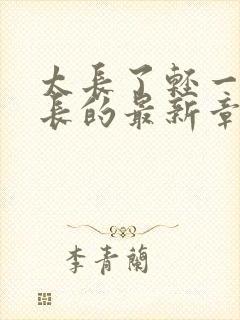 太長了輕一
長的最新章
李青蘭